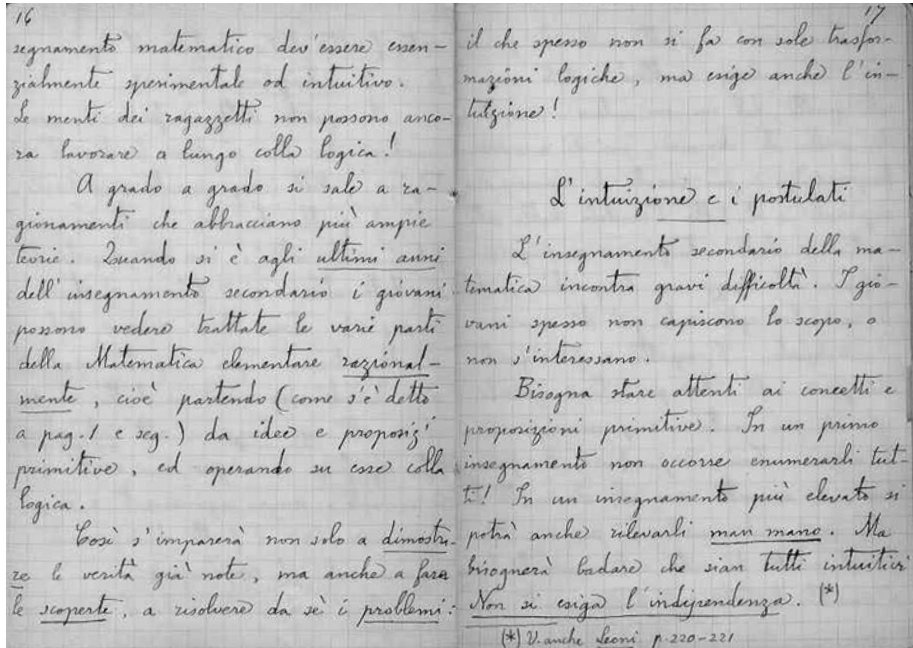 16
segnamento matematico dev'essere essen-
zialmente sperimentale od intuitivo.
Le menti dei ragazzetti non possono anco-
ra lavorare a lungo colla logica!
A grado a grado si sale a ra-
gionamenti che abbracciano più ampie
teorie. Quando si è agli ultimi anni
dell'insegnamento secondario i giovani
possono vedere trattate le varie parti
della Matematica elementare razional-
mente, cioè partendo (come s'è detto
a pag. 1 e seg.) da idee e proposiz'
primitive, ed operando su esse colla
logica.
Così s'imparerà non solo a dimostra-
re le verità già note, ma anche a fare
le scoperte, a risolvere da sè i problemi:
17
il che spesso non si fa con sole trasfor-
mazioni logiche, ma esige anche l'in-
tuizione!
L'intuizione e i postulati
L'insegnamento secondario della ma-
tematica incontra gravi difficoltà. I gio-
vani spesso non capiscono lo scopo, o
non s'interessano.
Bisogna stare attenti ai concetti e
proposizioni primitive. In un primo
insegnamento non occorre enumerarli tut-
ti! In un insegnamento più elevato si
potrà anche rilevarli man mano. Ma
bisognerà badare che sian tutti intuitivi
Non si esiga l'indipendenza. (*)
(*) V. anche Leoni p. 220-221